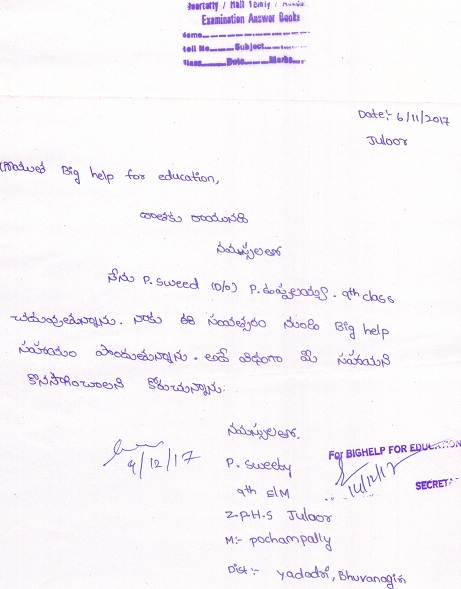 Quarterly / Half Yearly / Annual
Examination Answer Books
Name
Roll No. Subject
Class Date Marks
Date:- 6/11/2017
Juloor
Big help for education,
దాతకు రాయునది
నమస్కారం
నేను P. Sweed (D/o) P. 9th class
చదువుతున్నాను. నాకు ఈ సంవత్సరం నుండి Big help
సహాయం పొందుతున్నాను. అదే విధంగా మీ సహాయని
కొనసాగించాలని కోరుచున్నాను.
నమస్కారం,
9/12/17
For BIGHELP FOR EDUCATION
P. Sweeby
14/12/17
9th E/M
SECRET
Z.P.H.S Juloor
M:- pochampally
Dist:- yadadri, Bhuvanagiri